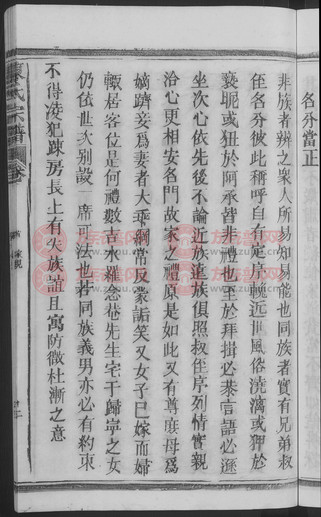 名分當正
非族者辨之衆人所易知易能也同族者實有兄弟叔
侄名分彼此稱呼自有定序輓近世風俗澆漓或狎於
褻昵或狃於阿承皆非禮也至於拜揖必恭言語必遜
坐次必依先後不論近族遠族俱照叔侄序列情實親
洽心更相安名門故家之禮原是如此又有尊庶母爲
嫡躋妾爲妻者大乖綱常反蒙詬笑又女子已嫁而歸
輙居客位是何禮數吉水羅念菴先生宅于歸寧之女
仍依世次别設一席可法也若同族義男亦必有約束
不得凌犯疎房長上有失族誼且寓防微杜漸之意
氏宗譜